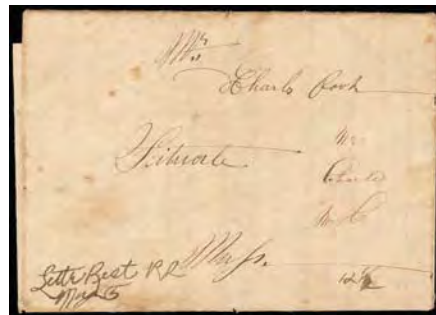 Mr
Charls Cook
Scituate
Mr
Charls
Mass.
Lette Best RR
May 5
12½